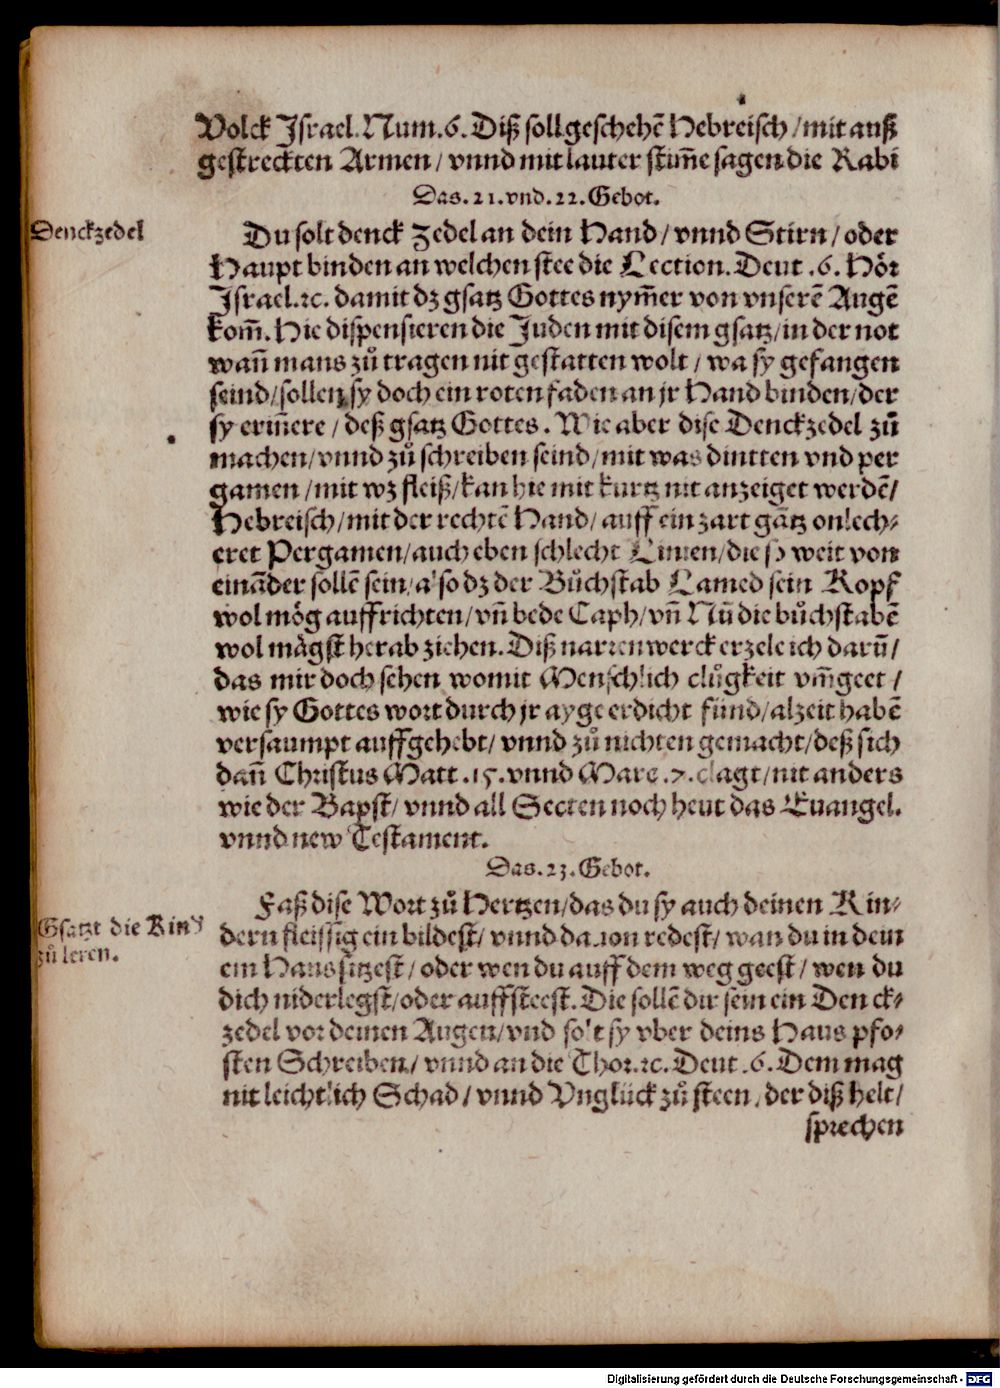 Volck Jsrael. Num. 6. Diß soll geschehẽ Hebreisch / mit auß
gestreckten Armen / vnnd mit lauter stim̃e sagen die Rabi
Das. 21. vnd. 22. Gebot.
Denckzedel
Du solt denck Zedel an dein Hand / vnnd Stirn / oder
Haupt binden an welchen stee die Lection. Deut .6. Hör
Jsrael. ꝛc. damit dz gsatz Gottes nym̃er von vnserẽ Augẽ
kom̃. Hie dispensieren die Juden mit disem gsatz / in der not
wañ mans zů tragen nit gestatten wolt / wa sy gefangen
seind / sollen sy doch ein roten faden an jr Hand binden / der
sy eriñere / deß gsatz Gottes. Wie aber dise Denckzedel zů
machen / vnnd zů schreiben seind / mit was dintten vnd per
gamen / mit wz fleiß / kan hie mit kurtz nit anzeiget werdẽ /
Hebreisch / mit der rechtẽ Hand / auff ein zart gãtz onlech⸗
eret Pergamen / auch eben schlecht Linien / die so weit von
einãder sollẽ sein / also dz der Bůchstab Lamed sein Kopf
wol mög auffrichten / vñ bede Caph / vñ Nũ die bůchstabẽ
wol mägst herab ziehen. Diß narrenwerck erzele ich darũ /
das mir doch sehen womit Menschlich clůgkeit vm̃geet /
wie sy Gottes wort durch jr ayge erdicht fünd / alzeit habẽ
versaumpt auffgehebt / vnnd zů nichten gemacht / deß sich
dañ Christus Matt .15. vnnd Marc .7. clagt / nit anders
wie der Bapst / vnnd all Secten noch heut das Euangel.
vnnd new Testament.
Das. 23. Gebot.
Gsatzt die Kind
zů leren.
Faß dise Wort zů Hertzen / das du sy auch deinen Kin⸗
dern fleissig ein bildest / vnnd dauon redest / wan du in dein
em Haus sitzest / oder wen du auff dem weg geest / wen du
dich niderlegst / oder auffsteest. Die sollẽ dir sein ein Denck⸗
zedel vor deinen Augen / vnd solt sy vber deins Haus pfo⸗
sten Schreiben / vnnd an die Thor. ꝛc. Deut .6. Dem mag
nit leichtlich Schad / vnnd Vnglück zů steen, der diß helt /
sprechen
Digitalisierung gefördert durch die Deutsche Forschungsgemeinschaft - DFG